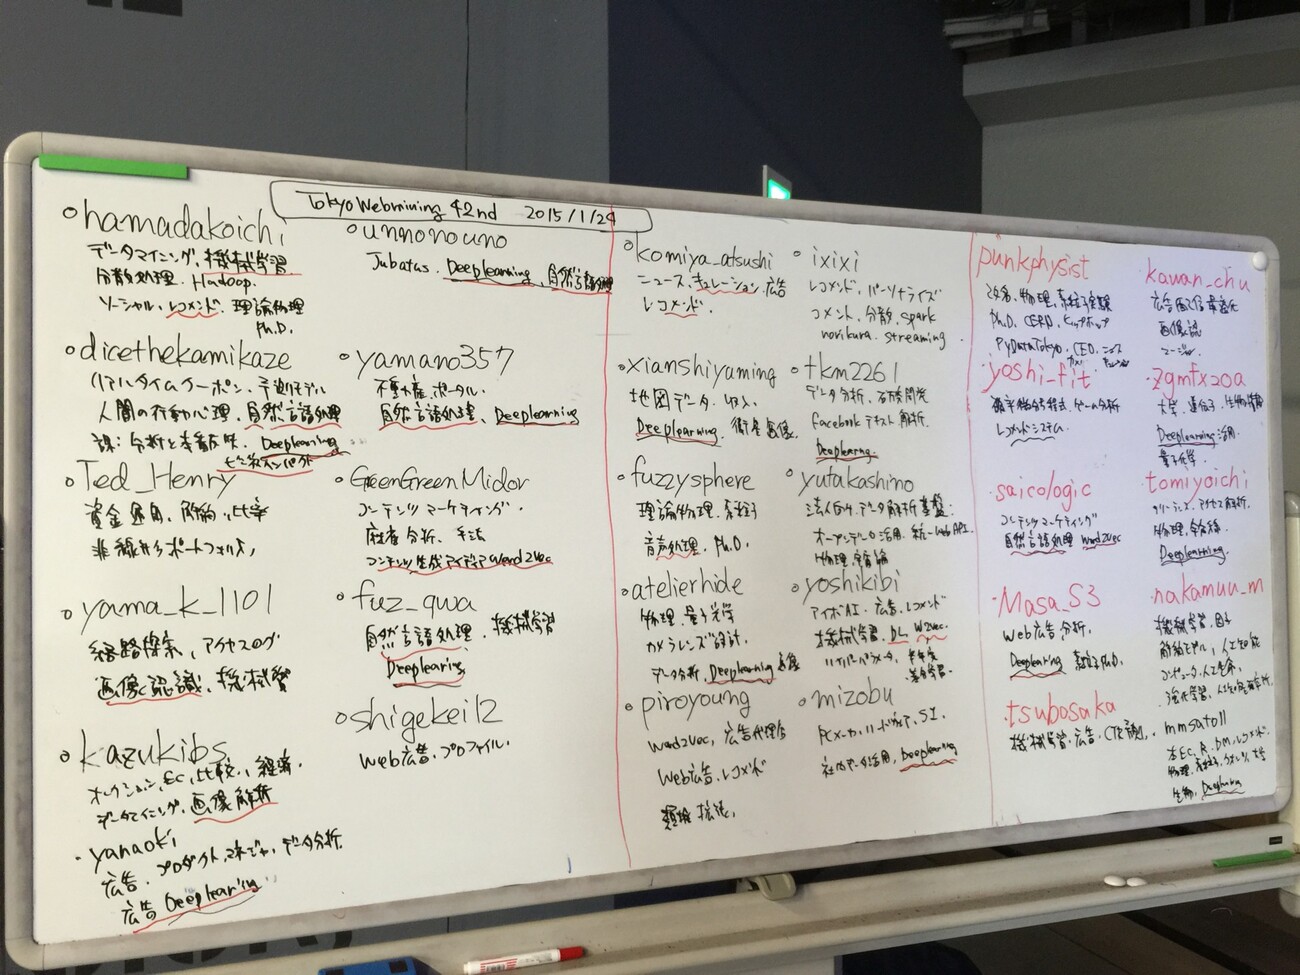 TokyoWebmining 42nd 2015/1/24
hamadakoichi
データマイニング、機械学習
分散処理、Hadoop.
ソーシャル、レコメンド、理論物理
Ph.D.
dicethekamikaze
リアルタイムクーポン、予測モデル
人間の行動心理、自然言語処理
課: 分析と Deeplearning
ビジネスインパクト
Ted_Henry
資金運用、解約、比率
非線形ポートフォリオ
yama_k_1101
経路探索、アクセスログ
画像認識、機械学習
kazukibs
オークション、EC、比較、経済、
データマイニング、画像解析
yanaoki
広告、プロダクトマネジャ、データ分析
広告 Deeplearing
unnonouno
Jubatus. Deeplearning、自然言語処理
yamano357
不動産ポータル.
自然言語処理、Deeplearning
GreenGreenMidor
コンテンツマーケティング.
分析、手法
コンテンツ生成アイディア word2vec
fuz_qwa
自然言語処理、機械学習
Deeplearing
shigekei12
web広告、プロファイル.
komiya_atsushi
ニュース、キュレーション、広告
レコメンド.
xianshiyaming
地図データ、収入、
Deeplearning、衛星画像.
fuzzysphere
理論物理、素粒子
音声処理、Ph.D.
atelierhide
物理、量子光学
カメラレンズ設計.
データ分析、Deeplearning 画像
piroyoung
word2vec、広告代理店
Web広告、レコメンド
類推
ixixi
レコメンド、パーソナライズ
コメント、分散、spark
norikura. streaming
tkm2261
データ分析、開発
Facebook テキスト解析.
Deeplearng.
yutakashino
法人向け、データ解析基盤:
オープンデータ活用、統一Web API.
物理、宇宙論
yoshikibi
アイボAI、広告、レコメンド
機械学習、DL、W2vec.
ハイパーパラメータ、
mizobu
PCメーカ、ハードウェア、SI.
社内データ活用、Deeplearning
punkphysist
物理、素粒子実験
Ph.D. CERN、ヒップホップ
PyDataTokyo、CEO、
yoshi_fit
微分方程式、ゲーム分析
レコメンドシステム.
saicologic
コンテンツマーケティング
自然言語処理 word2vec
Masa_S3
Web広告分析、
Deeplearing 素粒子Ph.D.
tsubosaka
機械学習、広告、CTR予測
kawan_chu
広告配信最適化
画像認
zgmfx20a
大学、遺伝子、生物情報
Deeplearning活用.
量子化学
tomiyoichi
アクセス解析.
物理
Deeplearning.
nakamuu_m
機械学習、因子
解約モデル、人工知能
コンピュータ、人工生命、
強化学習、
mmsato11
EC、R、DM、レコメンド.
物理、素粒子
生物、Deeplearing